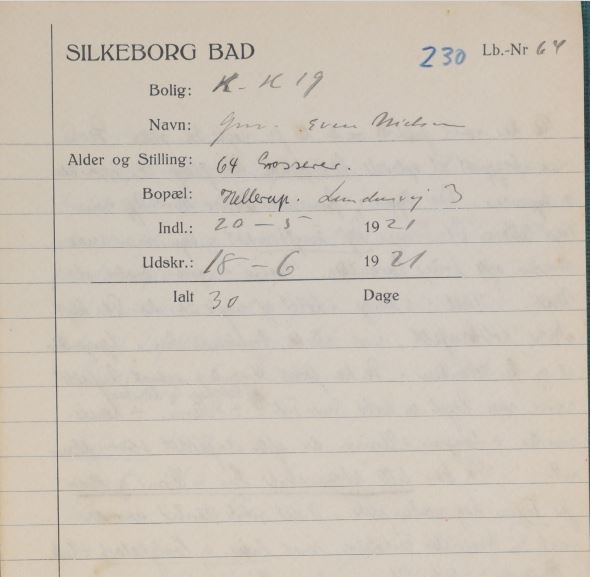 SILKEBORG BAD 230 Lb.-Nr 64
Bolig: K-K 19
Navn: Nielsen
Alder og Stilling: 64 Grosserer.
Bopæl: Hellerup. Lundevej 3
Indl.: 20 - 5 1921
Udskr.: 18 - 6 1921
Ialt 30 Dage